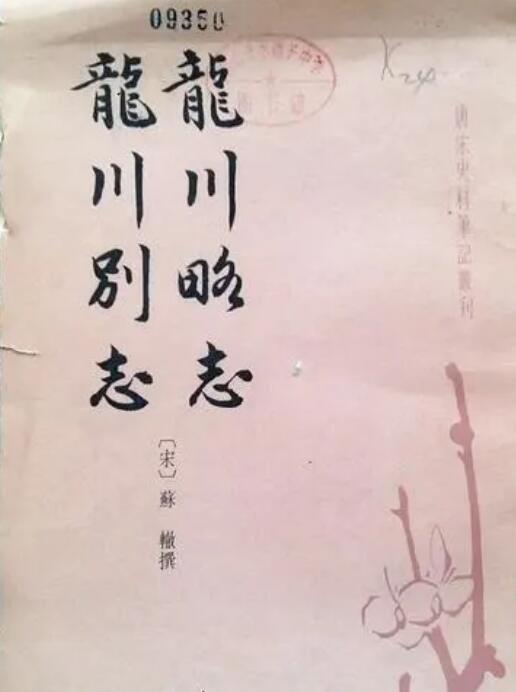 09350
K24
唐宋史料筆記叢刊
龍川略志
龍川別志
〔宋〕蘇 轍撰